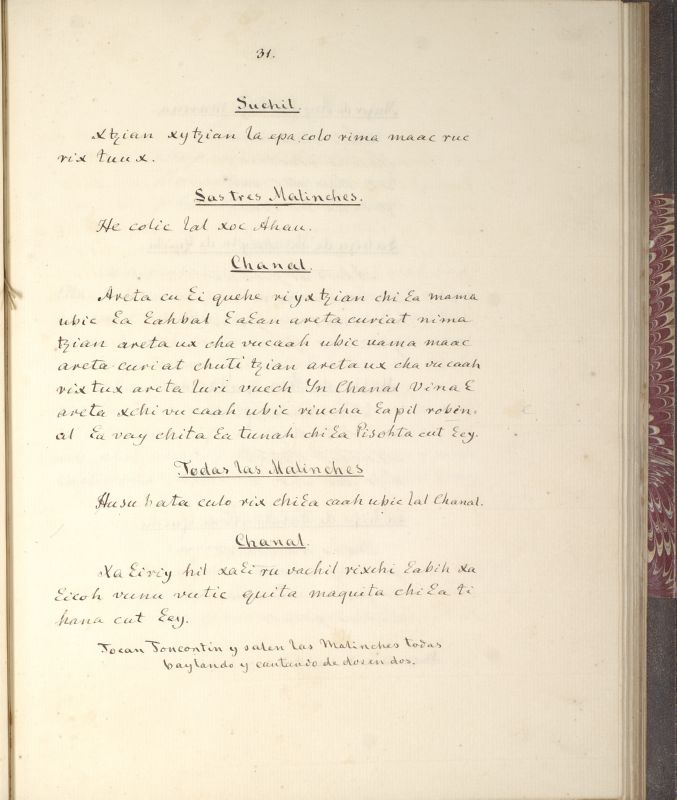 31.
Suchil.
Xtzian xytzian la epa colo rima maac ruc
rix tuux.
Las tres Malinches.
He colic lal xoc Ahau.
Chanal.
Areta cu Ɛi quehe ri yxtzian chi Ɛa mama
ubic Ɛa Ɛahbal ƐaƐan areta curiat nima
tzian areta ux cha vucaah ubic uama maac
areta curiat chuti tzian areta ux cha vu caah
rix tux areta luri vuech Yn Chanal VinaƐ
areta xchi vu caah ubic riucha Ɛapil robin.
al Ɛa vay chita Ɛa tunah chi Ɛa Pisohta cut Ɛcy.
Todas las Malinches
Husu bata culo rix chiƐa caah ubic lal Chanal.
Chanal.
Xa Ɛiviy hil xaƐi ru vachil rixchi Ɛabih xa
Ɛicoh vunu vutic quita maquita chiƐa ti
hana cut Ɛcy.
Tocan Toncontin y salen las Malinches todas
baylando y cantando de dos en dos.